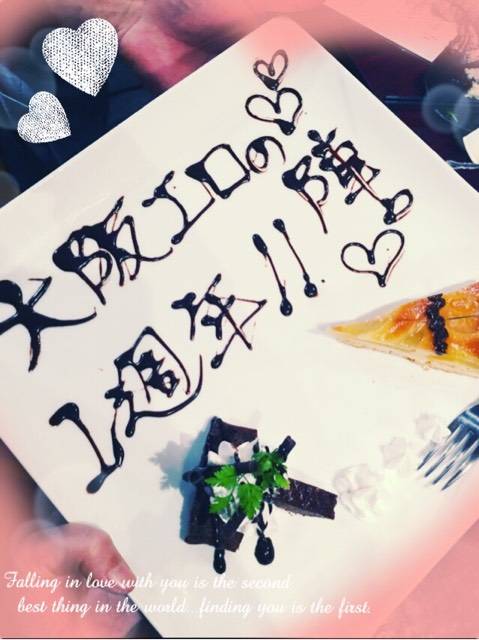 大阪エロの陣。
1週年!!
Falling in love with you is the second
best thing in the world...finding you is the first.